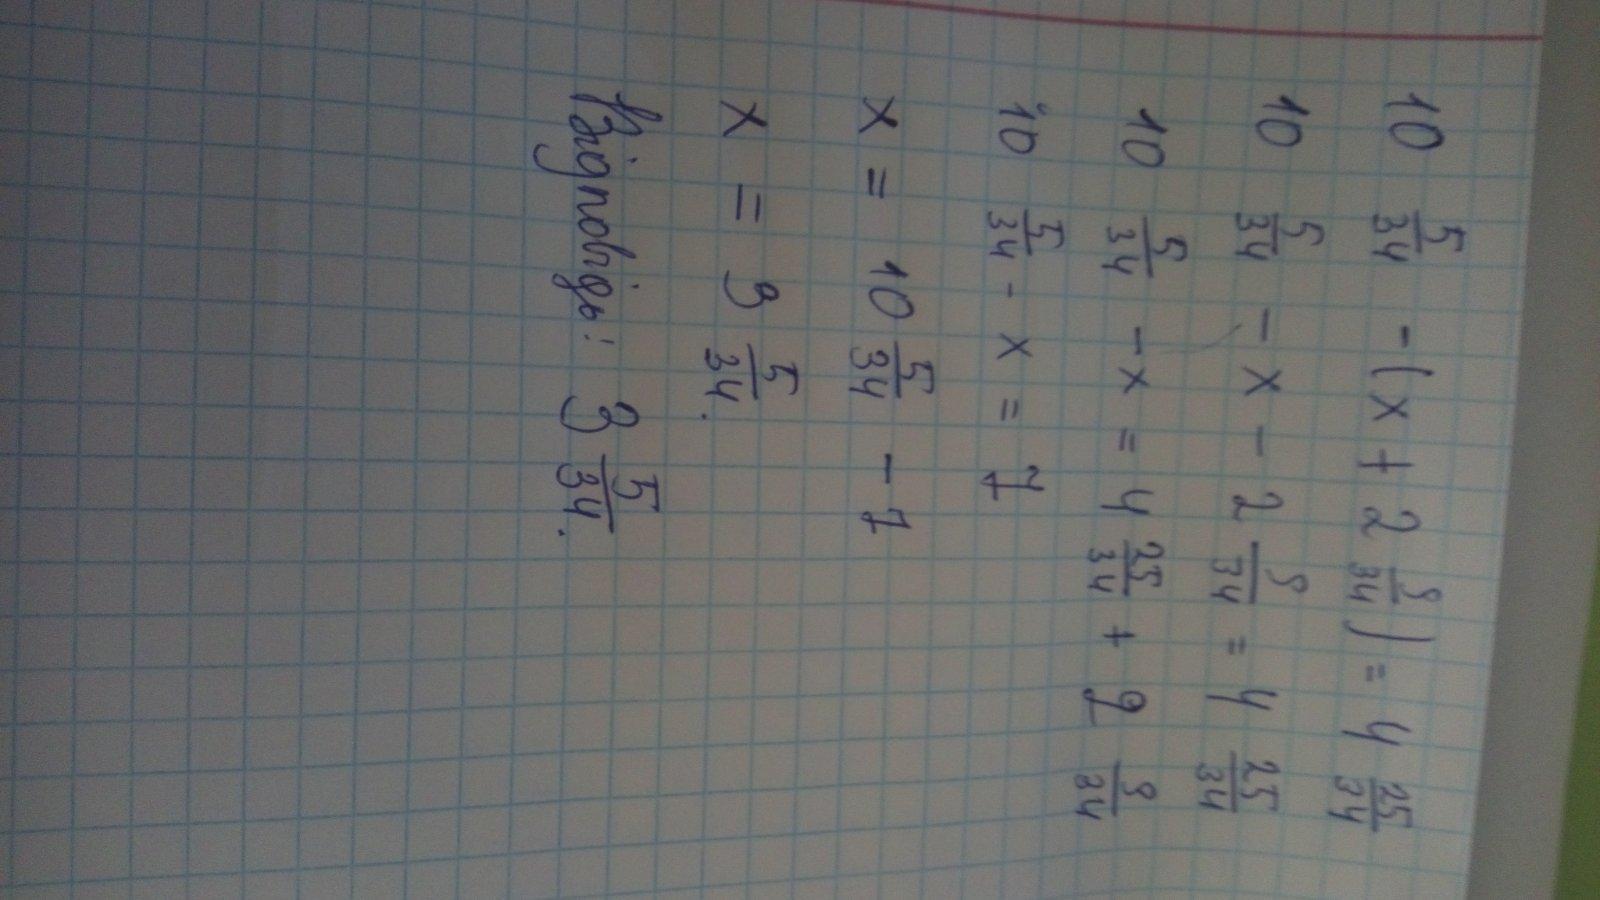 10 5/34 - (x + 2 9/34) = 4 25/34
10 5/34 - x - 2 9/34 = 4 25/34
10 5/34 - x = 4 25/34 + 2 9/34
10 5/34 - x = 7
x = 10 5/34 - 7
x = 3 5/34.
Відповідь: 3 5/34.